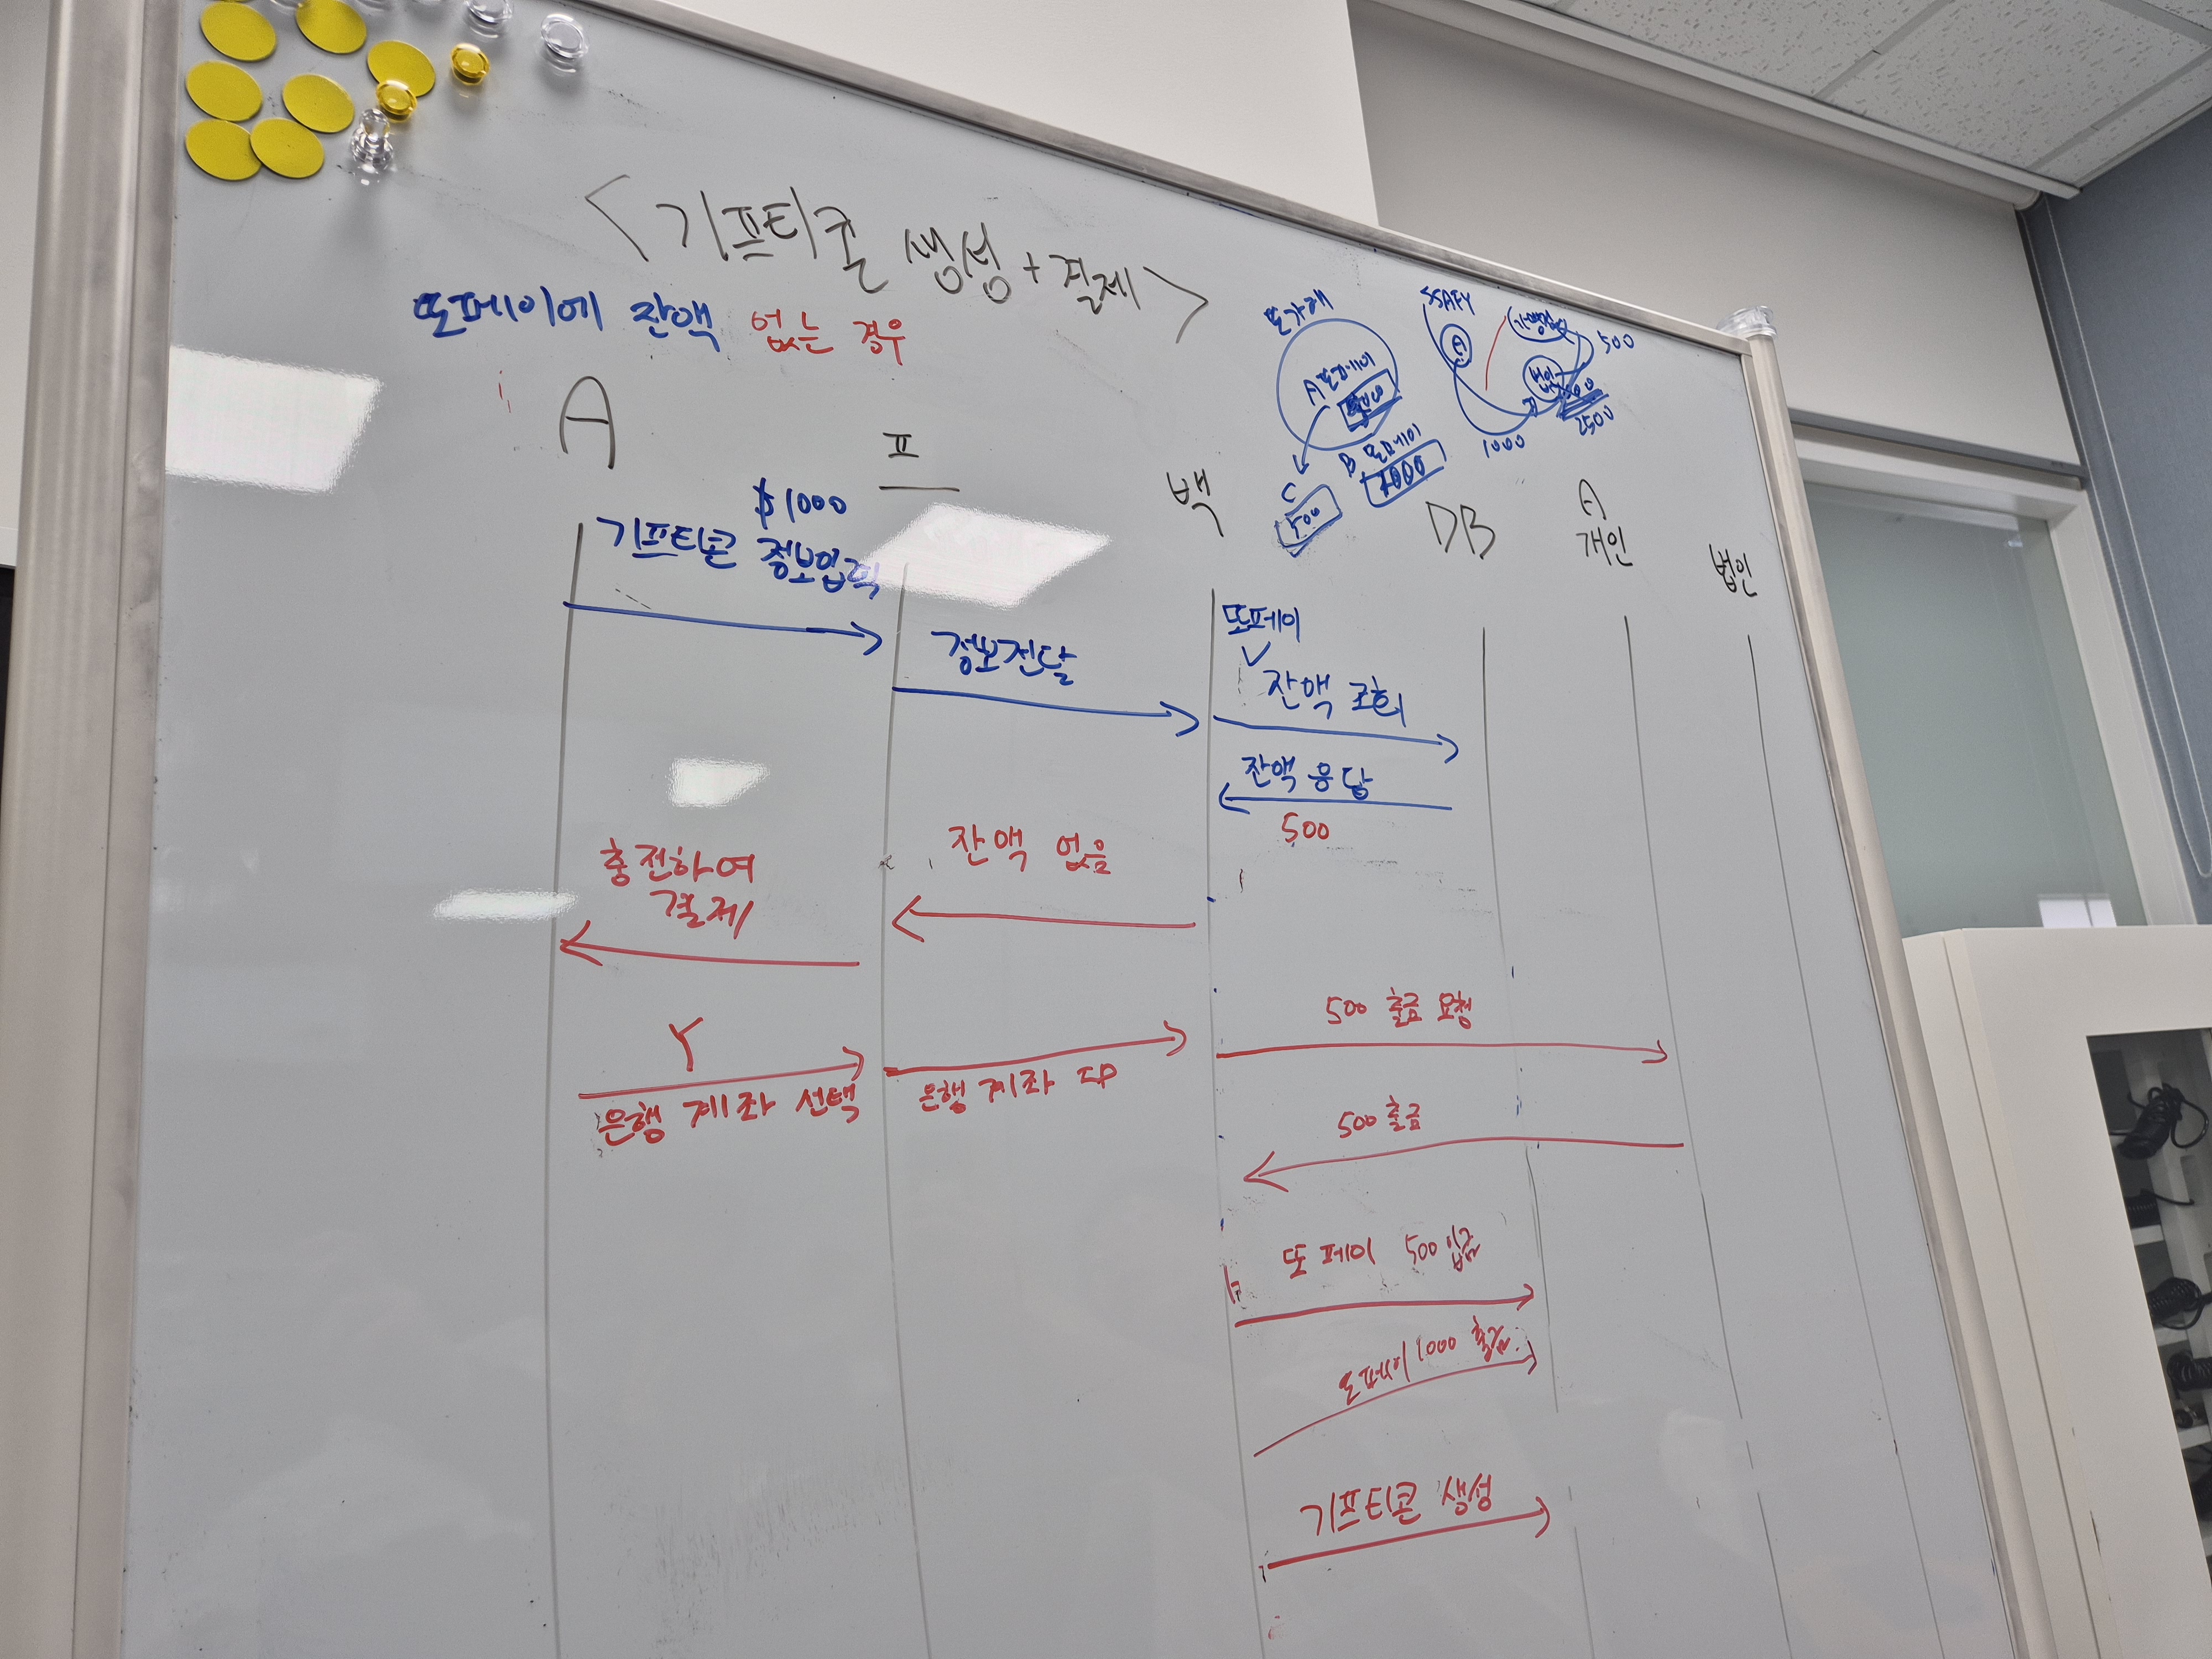 <기프티콘 생성+결제>
또페이에 잔액 없는 경우
또가게
A 또페이
B 또페이
1000
C
500
SSAFY
A
가맹점
500
법인
2500
1000
A
프
백
DB
A
개인
법인
$1000
기프티콘 정보입력
정보전달
또페이
잔액 조회
잔액 응답
500
잔액 없음
충전하여
결제
Y
은행 계좌 선택
은행 계좌 ID
500 출금 요청
500 출금
또페이 500 입금
또페이 1000 출금
기프티콘 생성